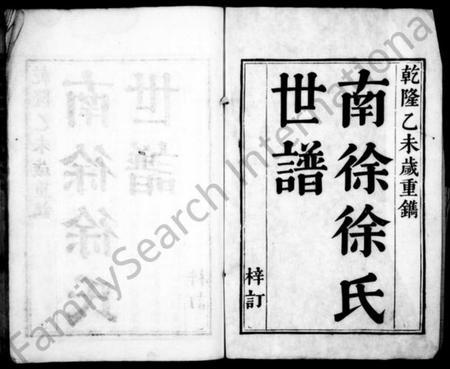 乾隆乙未歲重鐫
南徐徐氏
世譜
梓訂
FamilySearch International